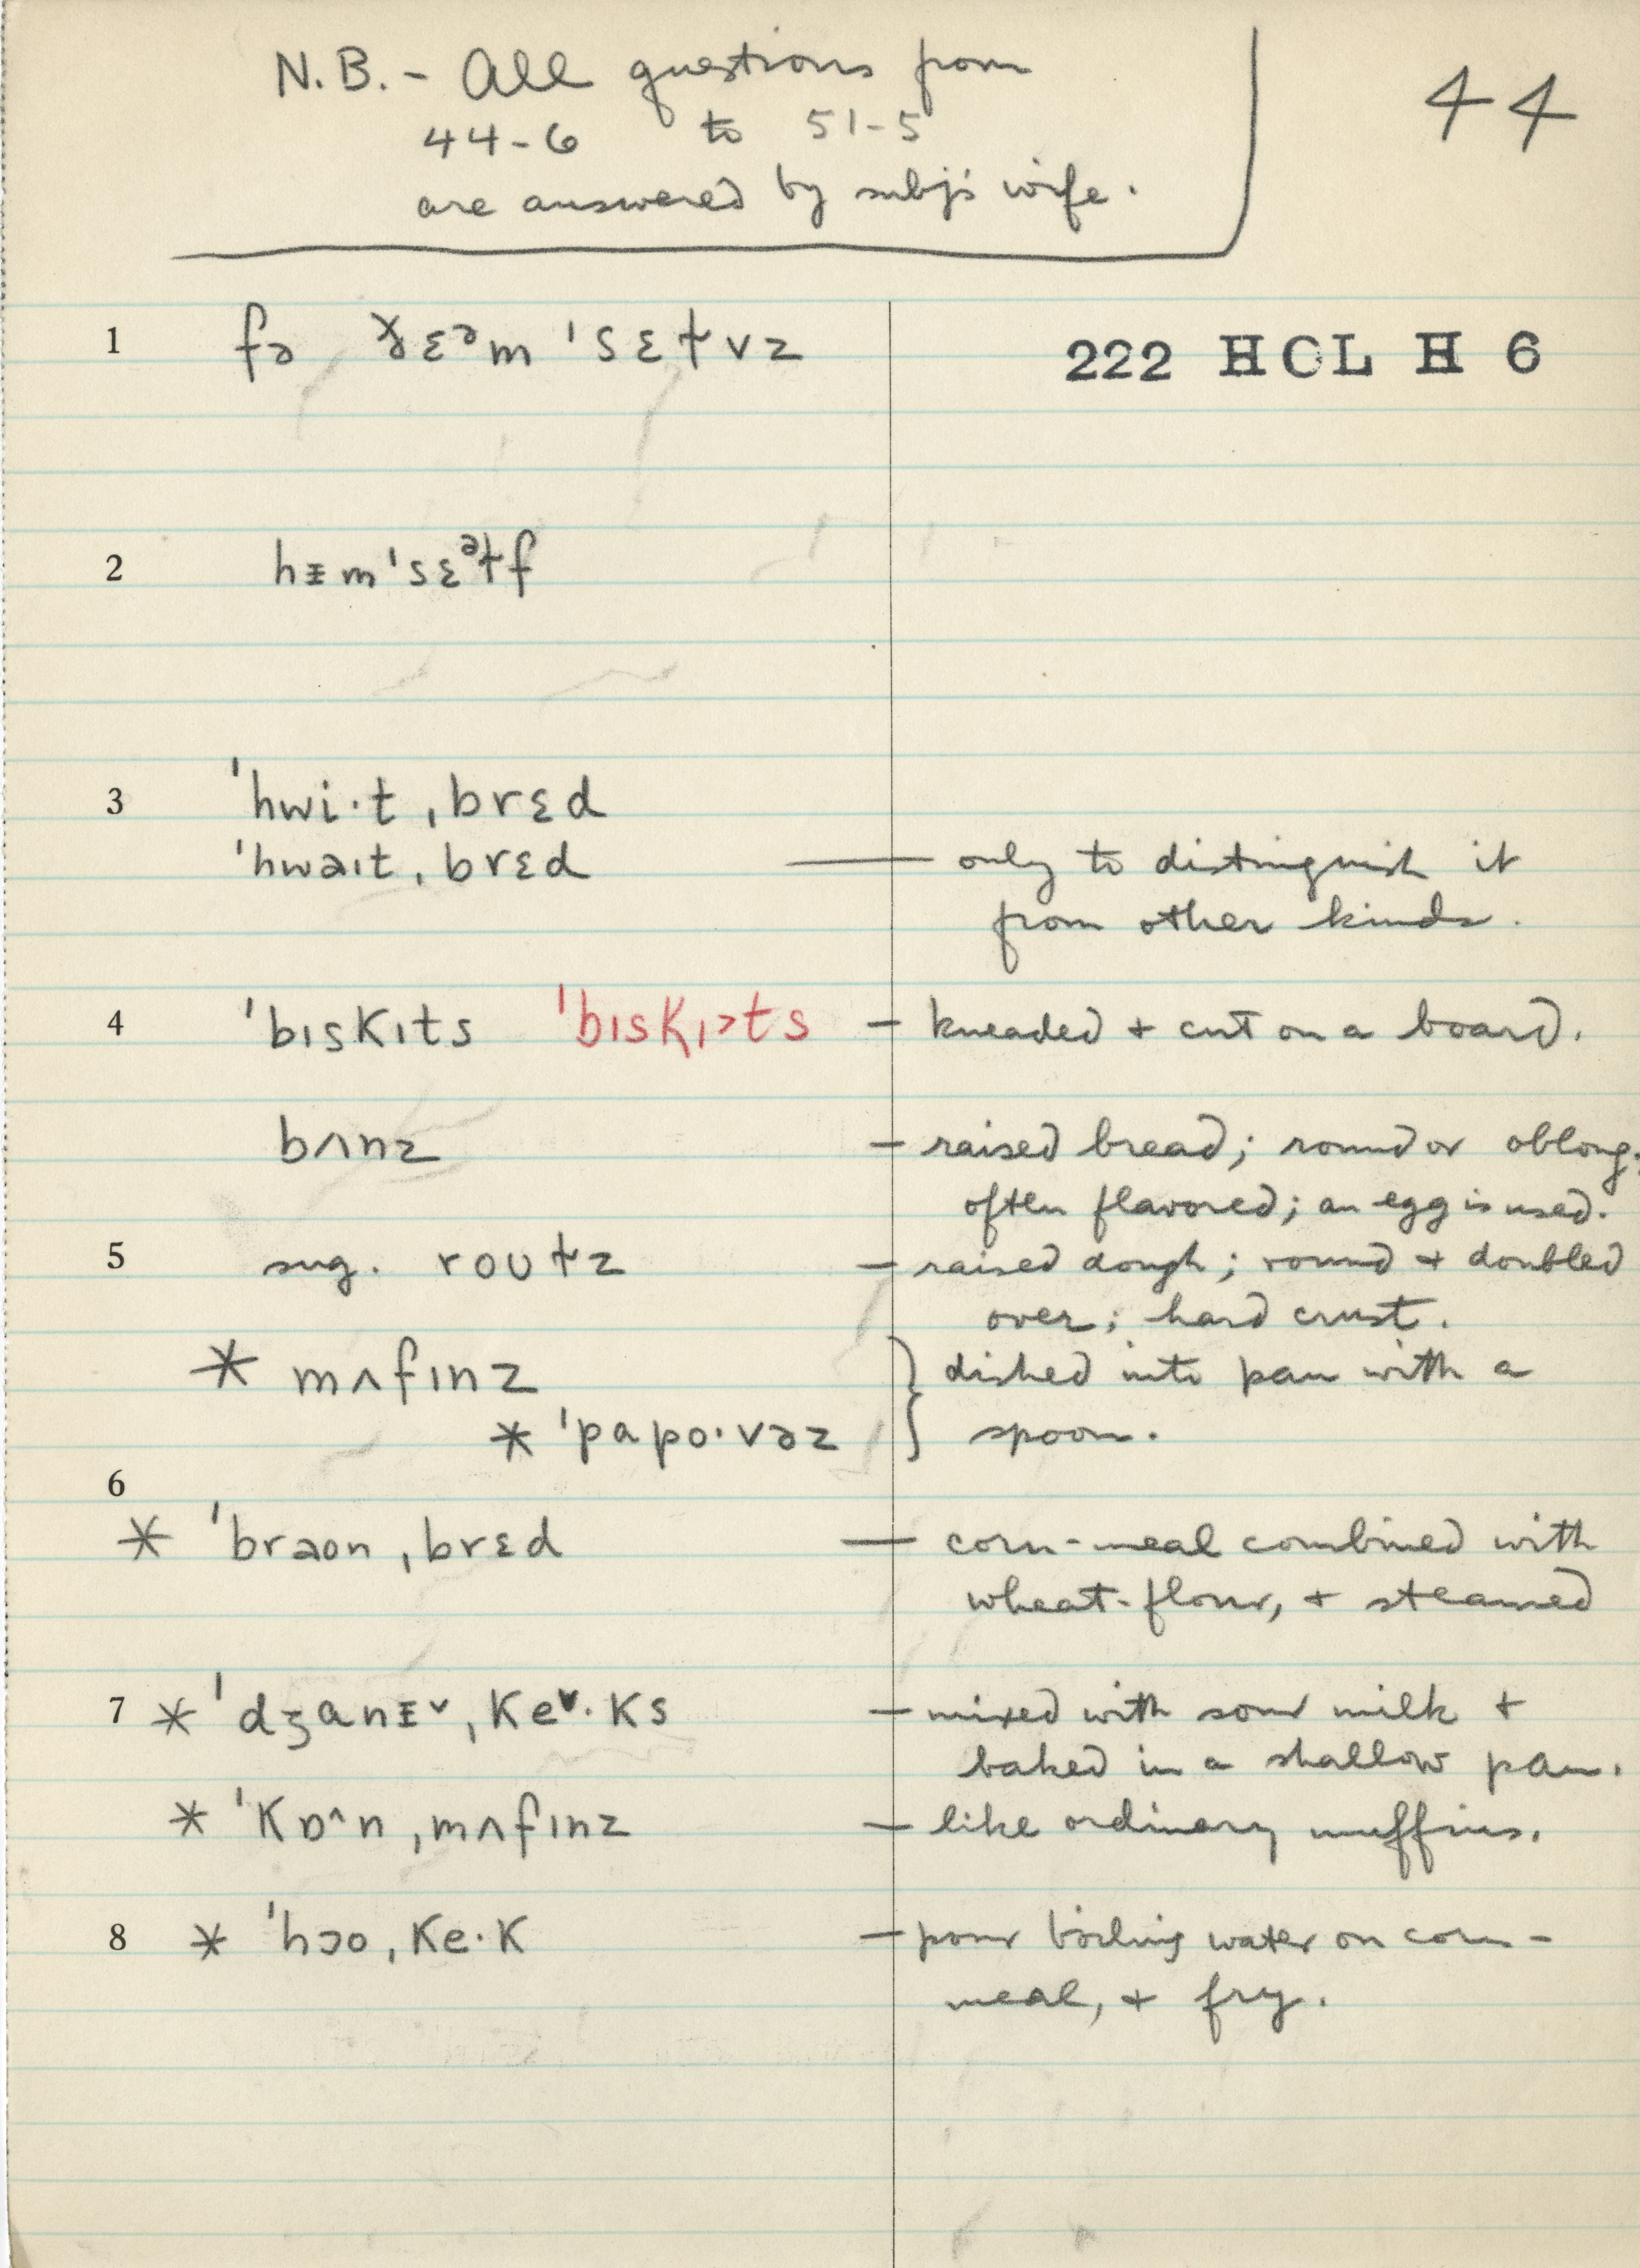 N.B. - All questions from
44-6 to 51-5
are answered by subj's wife.
44
1 fə ɤɛᵊm ˈsɛɫvz
222 HCL H 6
2 hɪm ˈsɛᵊɫf
3 ˈhwi·t ˌbrɛd
ˈhwaɪt ˌbrɛd — only to distinguish it
from other kinds.
4 ˈbɪsKɪts ˈbɪsKɪ>ts - kneaded + cut on a board.
bʌnz - raised bread; round or oblong.
often flavored; an egg is used.
5 sug. roʊɫz - raised dough; round + doubled
over; hard crust.
* mʌfɪnz } dished into pan with a
* ˈpapo·vəz spoon.
6
* ˈbraon ˌbrɛd — corn-meal combined with
wheat-flour, + steamed
7 * ˈdʒanɪˇ ˌKeˇ·Ks - mixed with sour milk +
baked in a shallow pan.
* ˈKɒ^n ˌmʌfɪnz - like ordinary muffins.
8 * ˈhɔo ˌKe·K - pour boiling water on corn-
meal, + fry.